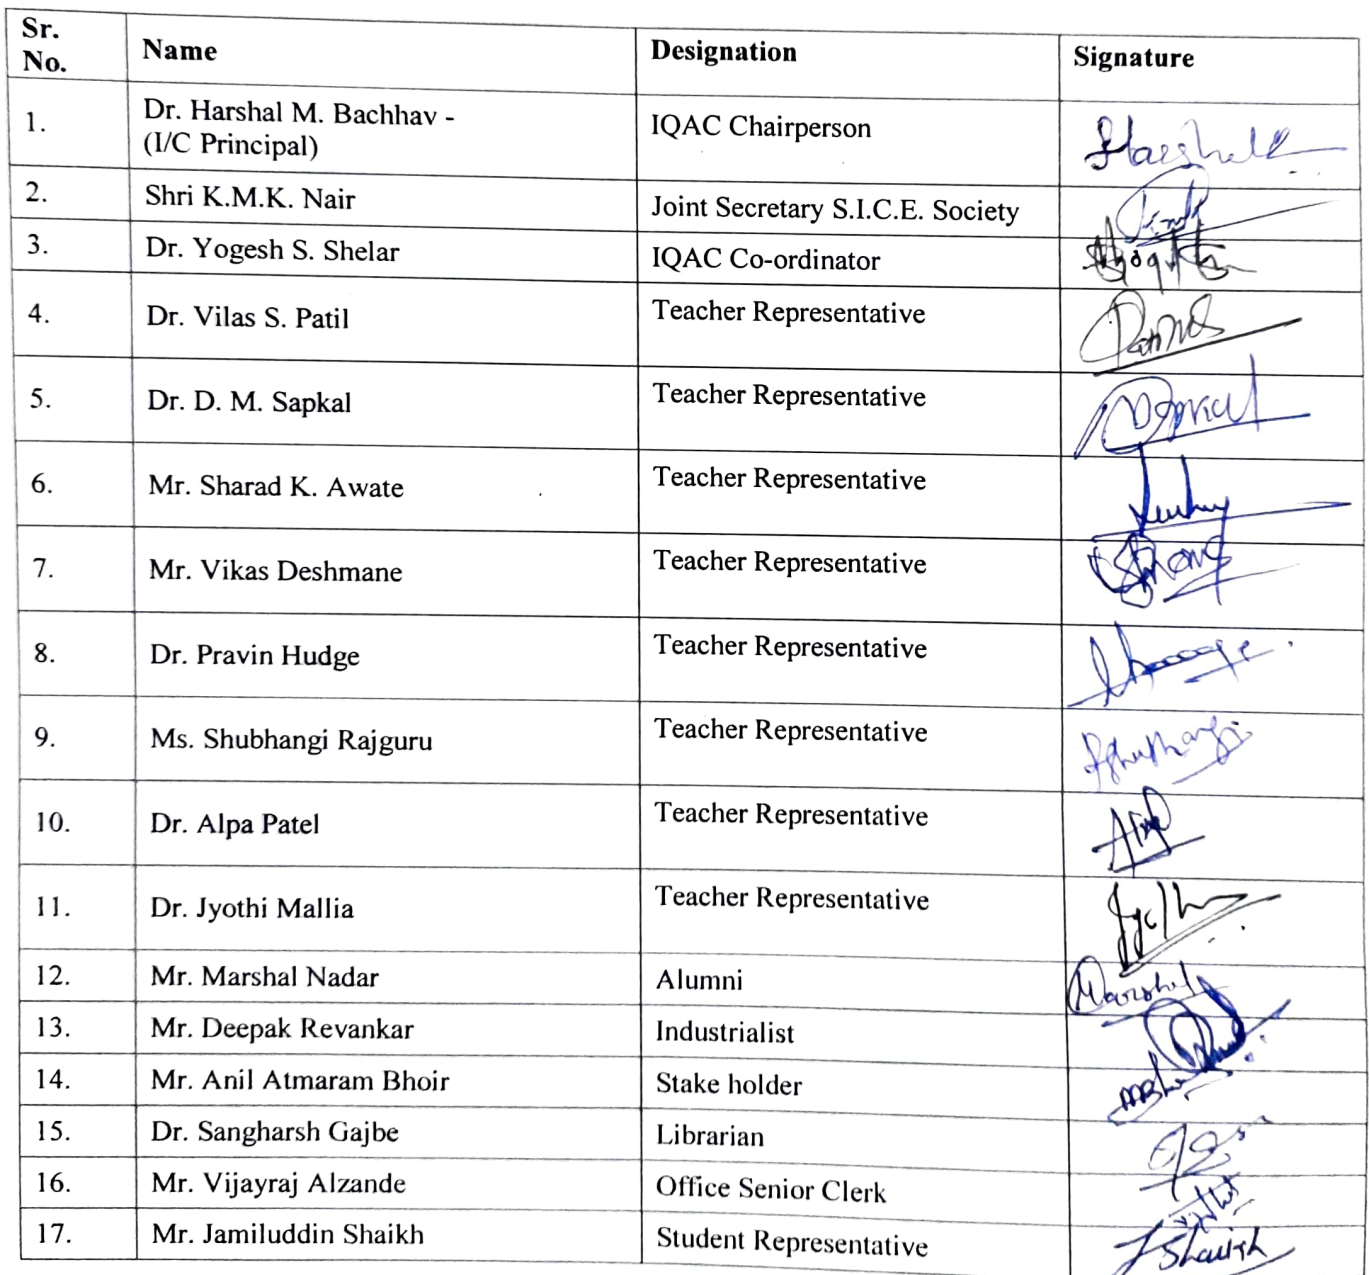 Sr.
No.
Name
Designation
Signature
1.
Dr. Harshal M. Bachhav -
(I/C Principal)
IQAC Chairperson
2.
Shri K.M.K. Nair
Joint Secretary S.I.C.E. Society
3.
Dr. Yogesh S. Shelar
IQAC Co-ordinator
4.
Dr. Vilas S. Patil
Teacher Representative
5.
Dr. D. M. Sapkal
Teacher Representative
6.
Mr. Sharad K. Awate
Teacher Representative
7.
Mr. Vikas Deshmane
Teacher Representative
8.
Dr. Pravin Hudge
Teacher Representative
9.
Ms. Shubhangi Rajguru
Teacher Representative
10.
Dr. Alpa Patel
Teacher Representative
11.
Dr. Jyothi Mallia
Teacher Representative
12.
Mr. Marshal Nadar
Alumni
Marshal
13.
Mr. Deepak Revankar
Industrialist
14.
Mr. Anil Atmaram Bhoir
Stake holder
15.
Dr. Sangharsh Gajbe
Librarian
16.
Mr. Vijayraj Alzande
Office Senior Clerk
17.
Mr. Jamiluddin Shaikh
Student Representative
JShaikh